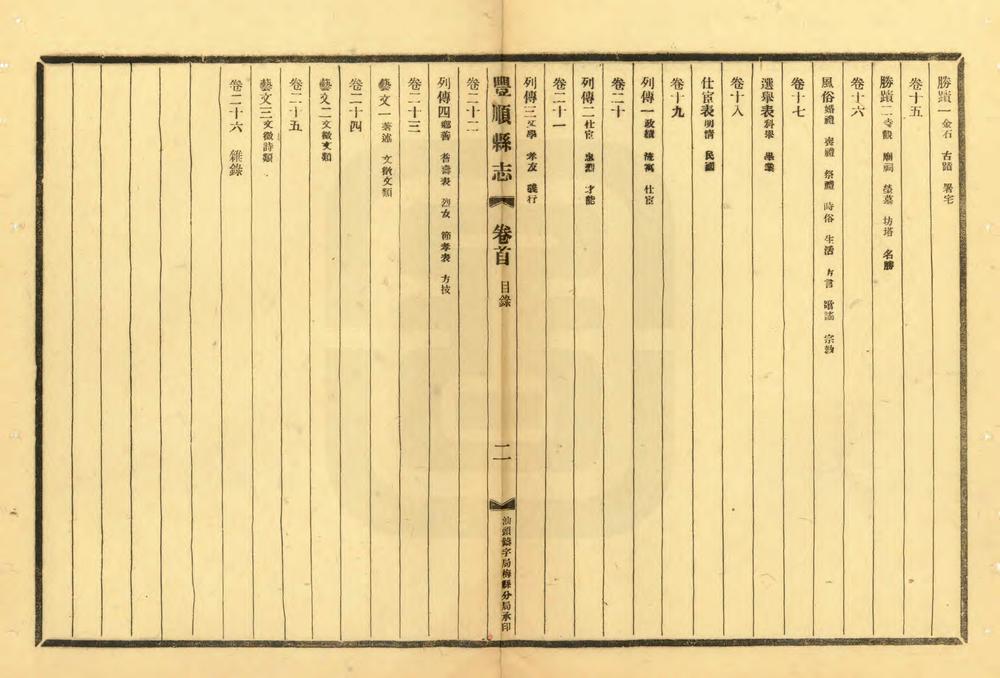 勝蹟一 金石 古蹟 署宅
卷十五
勝蹟二 寺觀 廟祠 塋墓 坊塔 名勝
卷十六
風俗 婚禮 喪禮 祭禮 時俗 生活 方言 歌謠 宗教
卷十七
選舉表 科舉 學業
卷十八
仕宦表 明清 民國
卷十九
列傳一 政績 流寓 仕宦
卷二十
列傳二 仕宦 忠烈 才能
卷二十一
列傳三 文學 孝友 義行
豐順縣志 卷首 目錄 二 汕頭鑄字局梅縣分局承印
卷二十二
列傳四 鄉善 耆壽表 烈女 節孝表 方技
卷二十三
藝文一 著述 文徵文類
卷二十四
藝文二 文徵文類
卷二十五
藝文三 文徵詩類
卷二十六 雜錄